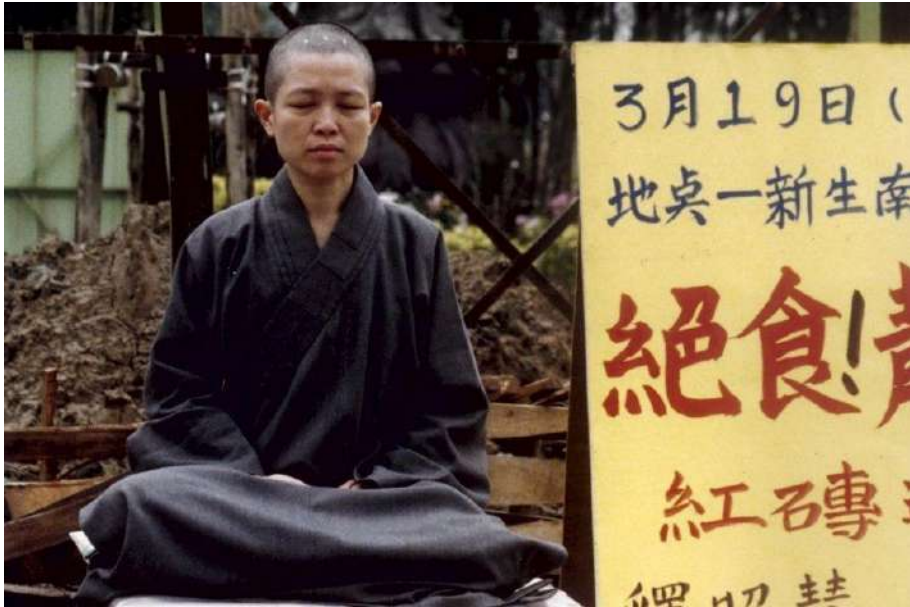 3月19日(
地点一新生南
絕食!
紅磚
釋昭慧